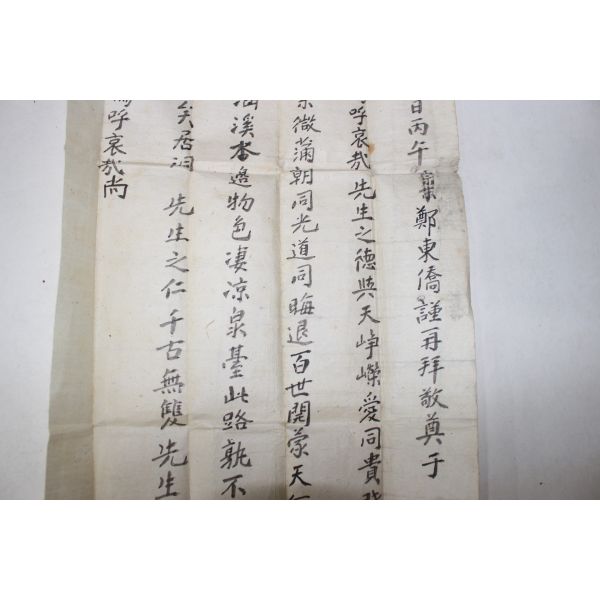 日丙午 鄭東僑謹再拜敬奠于
呼哀哉先生之德與天崢嶸愛同貴
微蒲朝同光道同晦退百世開蒙天
溪 邊物色凄凉泉臺此路孰不
矣居洞 先生之仁千古無雙先生
呼哀哉尚